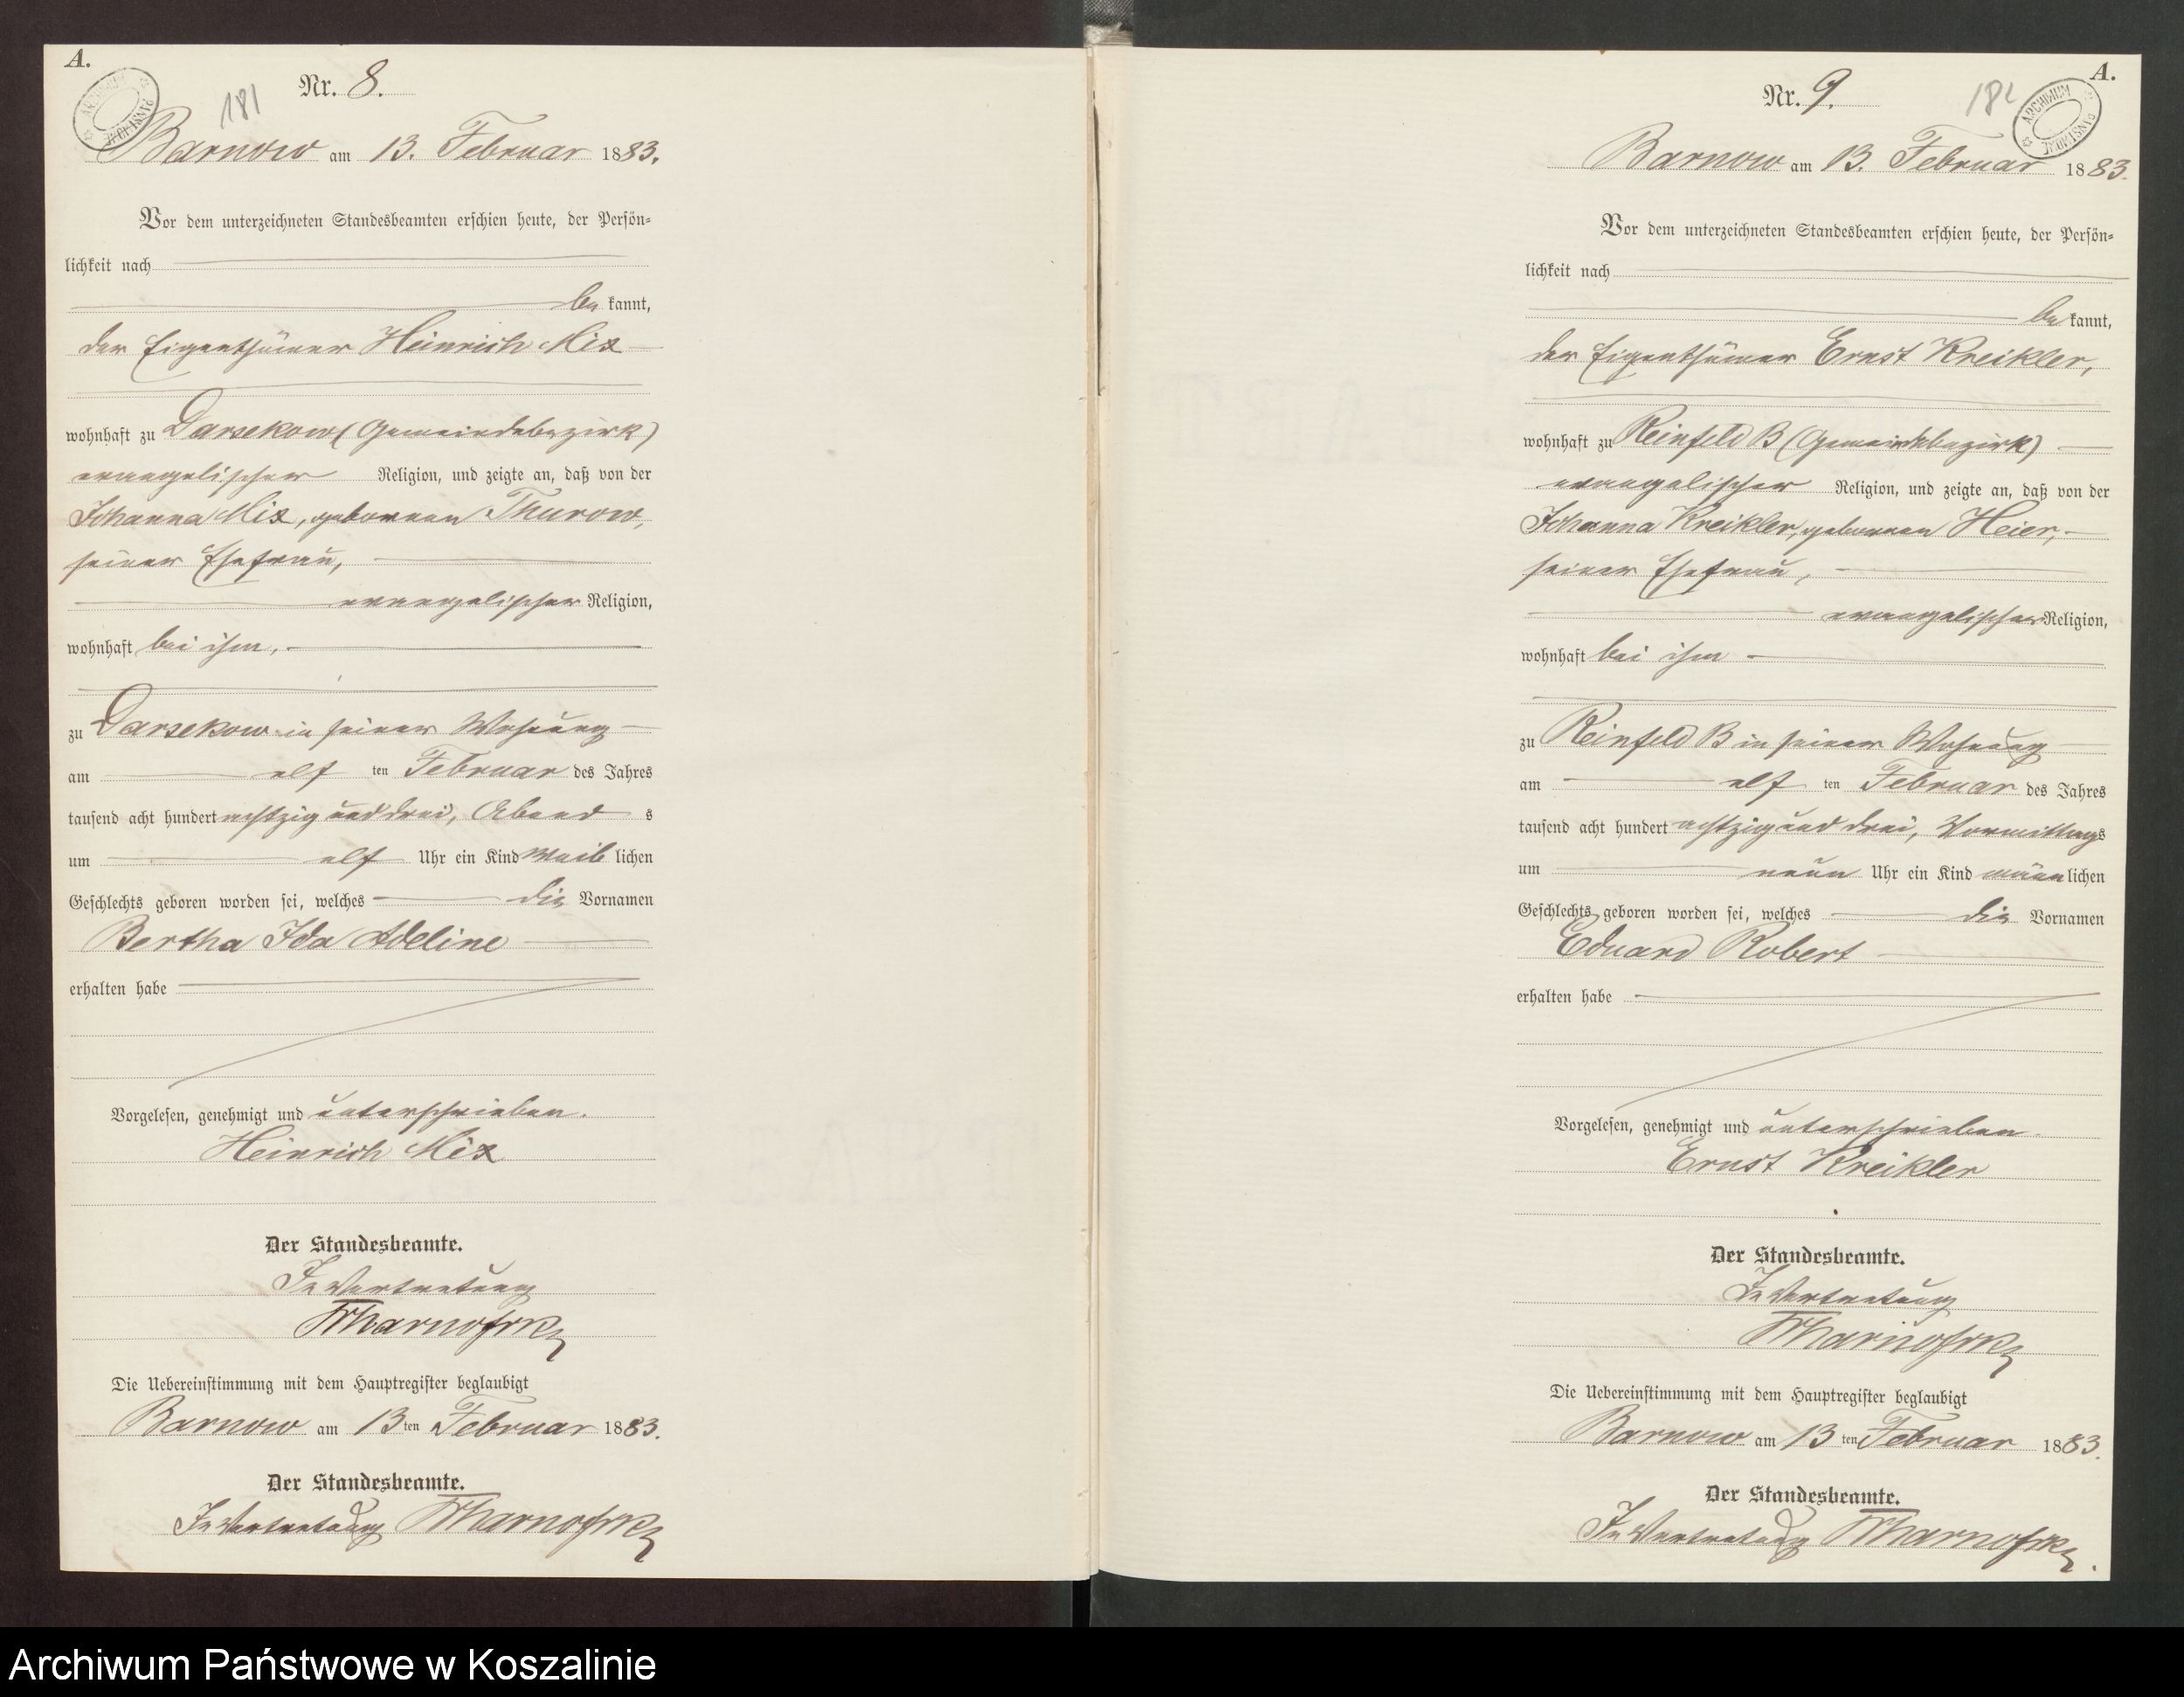 A.
ARCHIWUM PAŃSTWOWE
181
Nr. 8.
Barnow am 13. Februar 1883.
Vor dem unterzeichneten Standesbeamten erschien heute, der Persön-
lichkeit nach
be kannt,
der Eigenthümer Heinrich Mix
wohnhaft zu Darsekow (Gemeindebezirk)
evangelischer Religion, und zeigte an, daß von der
Johanna Mix, geborenen Thurow,
seiner Ehefrau,
evangelischer Religion,
wohnhaft bei ihm,
zu Darsekow in seiner Wohnung
am elf ten Februar des Jahres
tausend acht hundert achtzig und drei, Abend s
um elf Uhr ein Kind weib lichen
Geschlechts geboren worden sei, welches die Vornamen
Bertha Ida Adeline
erhalten habe
Vorgelesen, genehmigt und unterschrieben.
Heinrich Mix
Der Standesbeamte.
In Vertretung
Die Uebereinstimmung mit dem Hauptregister beglaubigt
Barnow am 13 ten Februar 1883.
Der Standesbeamte.
In Vertretung
A.
ARCHIWUM PAŃSTWOWE
182
Nr. 9.
Barnow am 13. Februar 1883.
Vor dem unterzeichneten Standesbeamten erschien heute, der Persön-
lichkeit nach
be kannt,
der Eigenthümer Ernst Kreikler,
wohnhaft zu Reinfeld B (Gemeindebezirk)
evangelischer Religion, und zeigte an, daß von der
Johanna Kreikler, geborenen Heier,
seiner Ehefrau,
evangelischer Religion,
wohnhaft bei ihm
zu Reinfeld B in seiner Wohnung
am elf ten Februar des Jahres
tausend acht hundert achtzig und drei, Vormittags
um neun Uhr ein Kind männ lichen
Geschlechts geboren worden sei, welches die Vornamen
Eduard Robert
erhalten habe
Vorgelesen, genehmigt und unterschrieben.
Ernst Kreikler
Der Standesbeamte.
In Vertretung
Die Uebereinstimmung mit dem Hauptregister beglaubigt
Barnow am 13 ten Februar 1883.
Der Standesbeamte.
In Vertretung
Archiwum Państwowe w Koszalinie